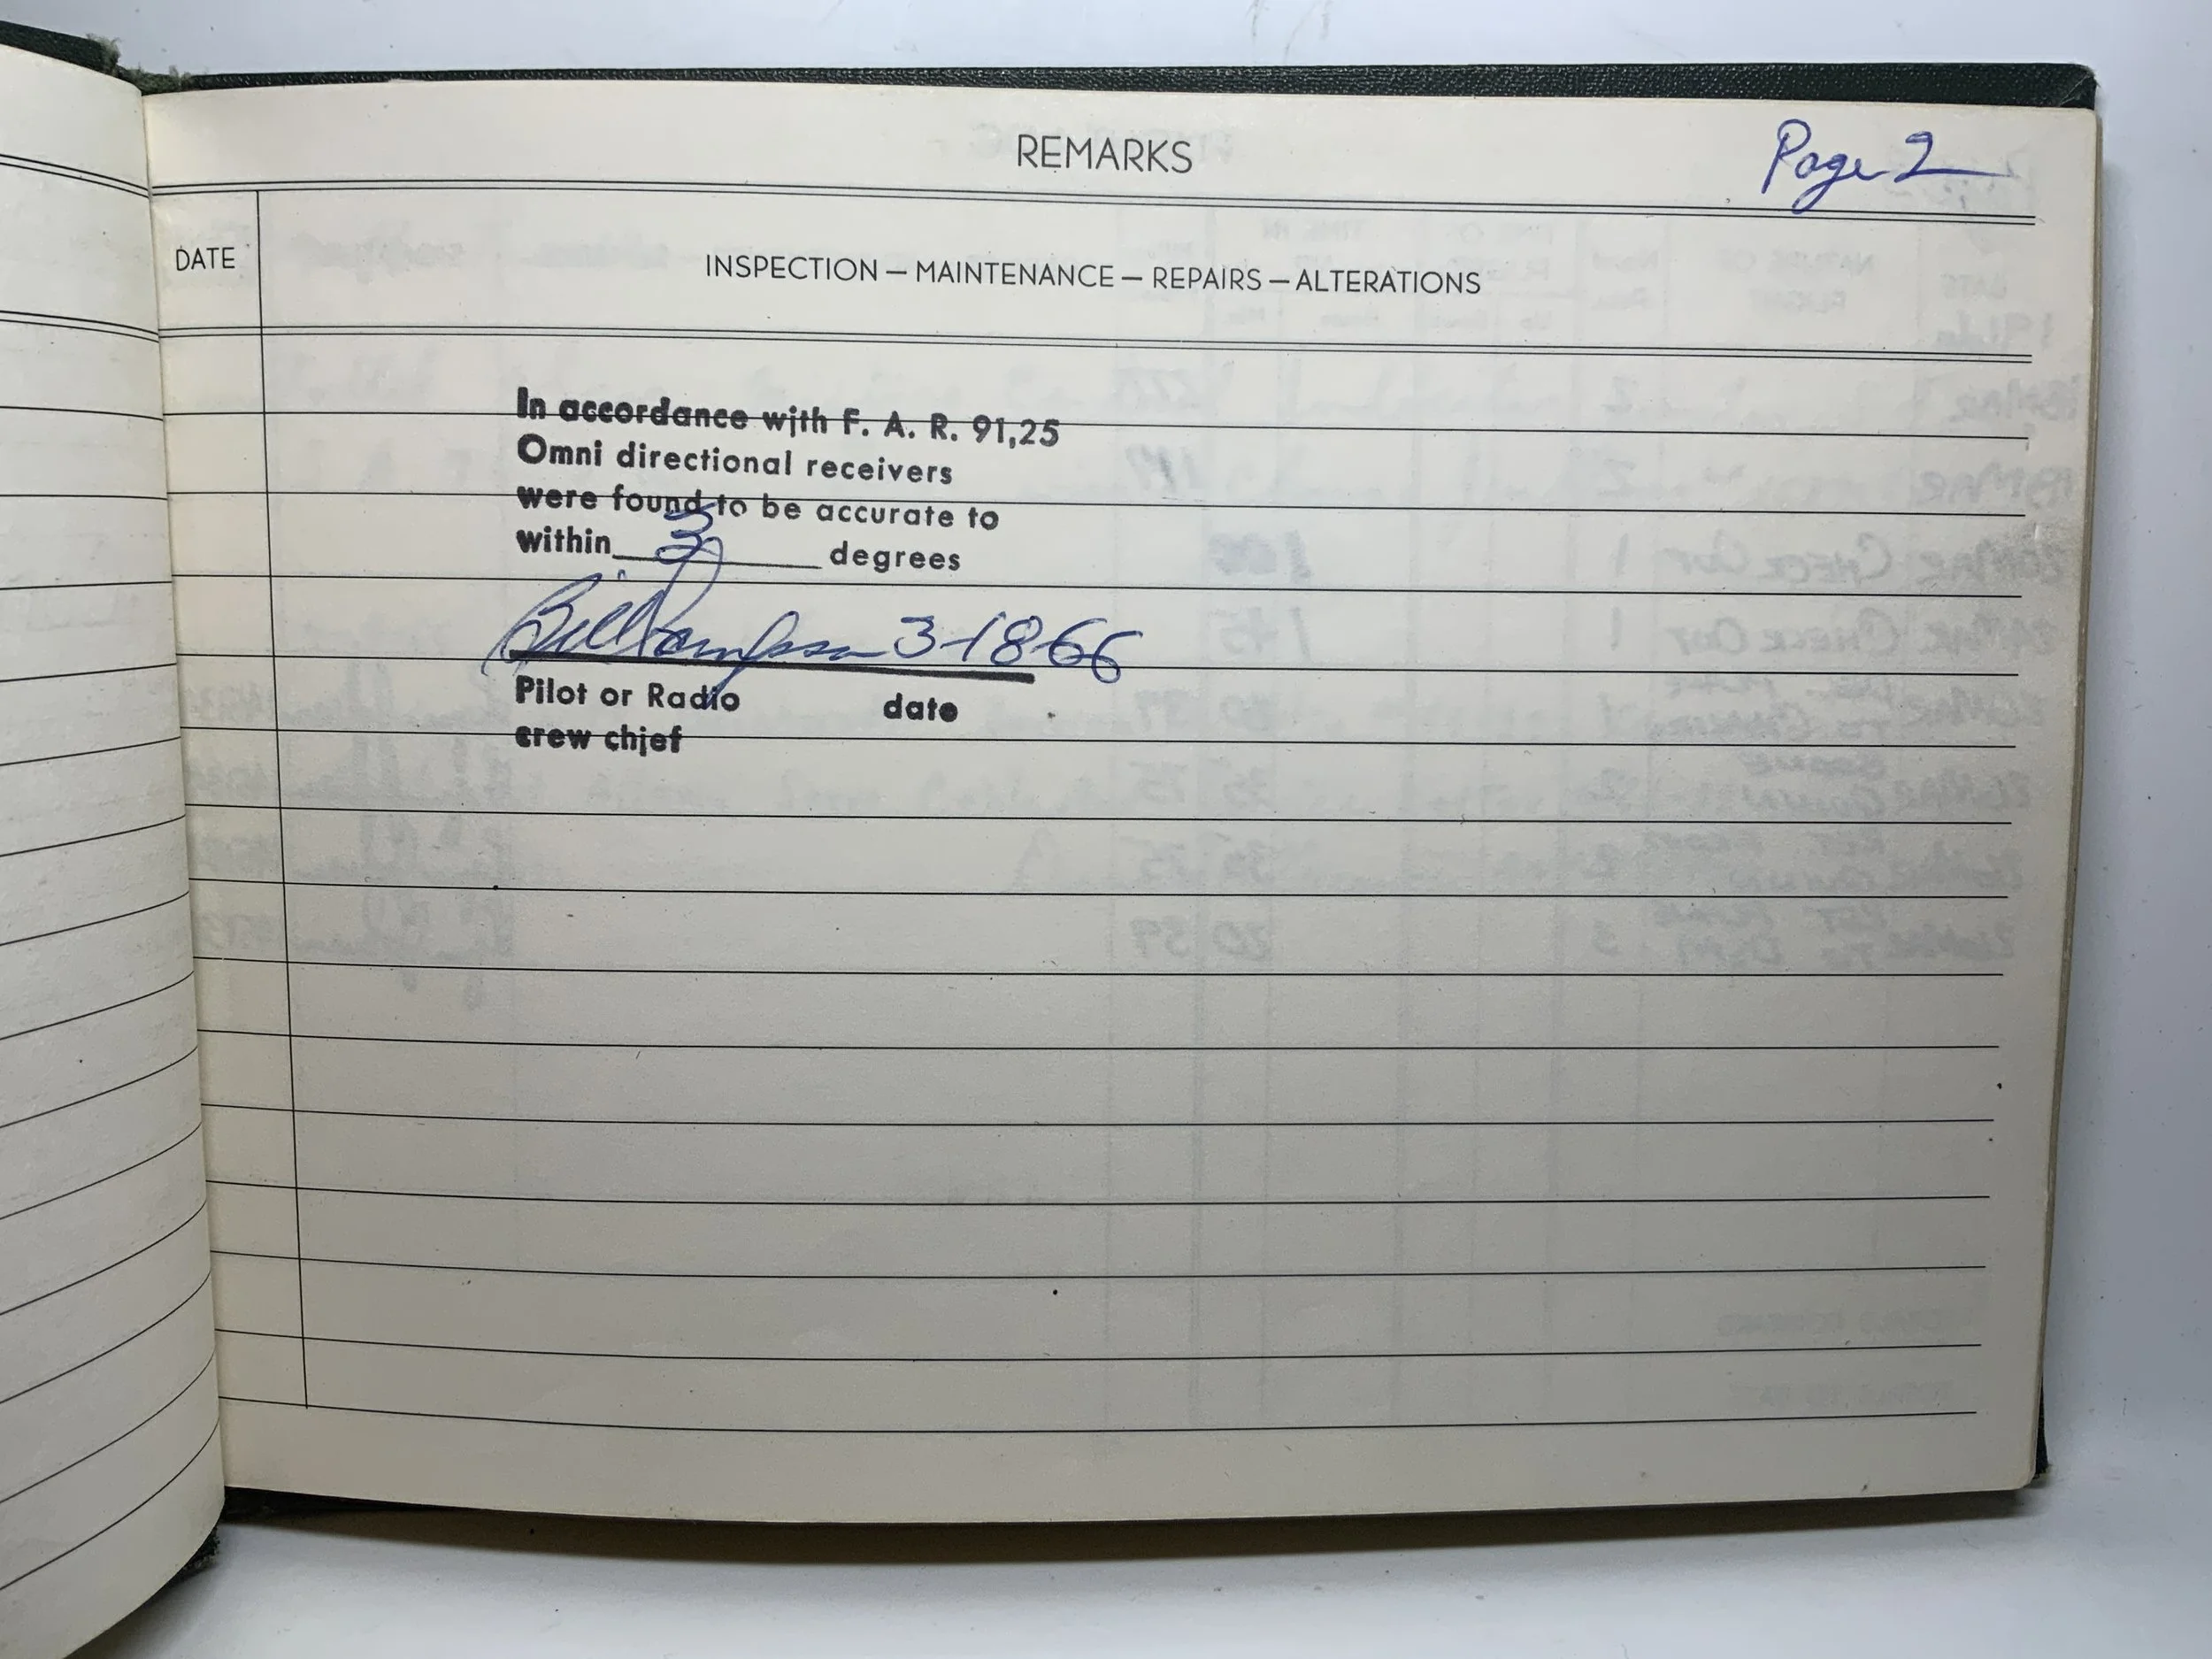 REMARKS
Page 2
DATE
INSPECTION — MAINTENANCE — REPAIRS — ALTERATIONS
In accordance with F. A. R. 91,25
Omni directional receivers
were found to be accurate to
within 3 degrees
Bill 3-18-66
Pilot or Radio date
crew chief